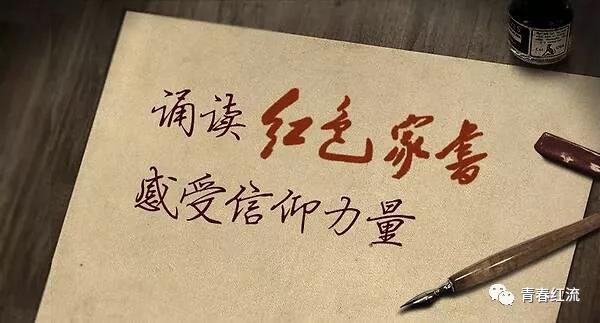 诵读红色家书
感受信仰力量
青春红流